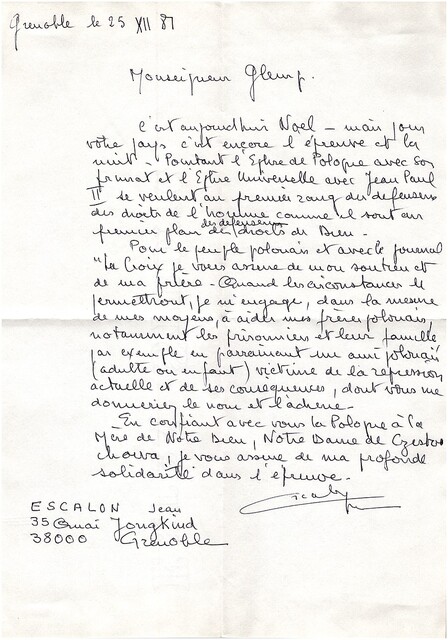 Grenoble le 25 XII 81
Monseigneur Glemp.
C'est aujourdhui Noel - mais pour
votre pays c'est encore l'épreuve et la
nuit. Pourtant l'Eglise de Pologne avec son
primat et l'Eglise Universelle avec Jean Paul
II se veulent au premier rang du defenseurs
des droits de l'homme comme il sont au
premier plan des defenseurs des droits de Dieu -
Pour le peuple polonais et avec le journal
"La Croix je vous assure de mon soutien et
de ma prière - Quand les circonstances le
permettront, je m'engage, dans la mesure
de mes moyens, à aider mes frères polonais,
notamment les prisonniers et leur famille
par exemple en parrainant un ami polonais
(adulte ou enfant) victime de la repression
actuelle et de ses consequences, dont vous me
donneriez le nom et l'adresse -
En confiant avec vous la Pologne à la
Mère de Notre Dieu, Notre Dame de Czesto
chowa, je vous assure de ma profonde
solidarité dans l'épreuve -
ESCALON Jean
35 Quai Jongkind
38000 Grenoble